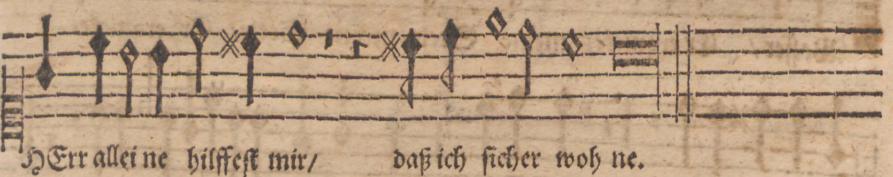 HErr allei ne hilffeſt mir/ daß ich ſicher woh ne.